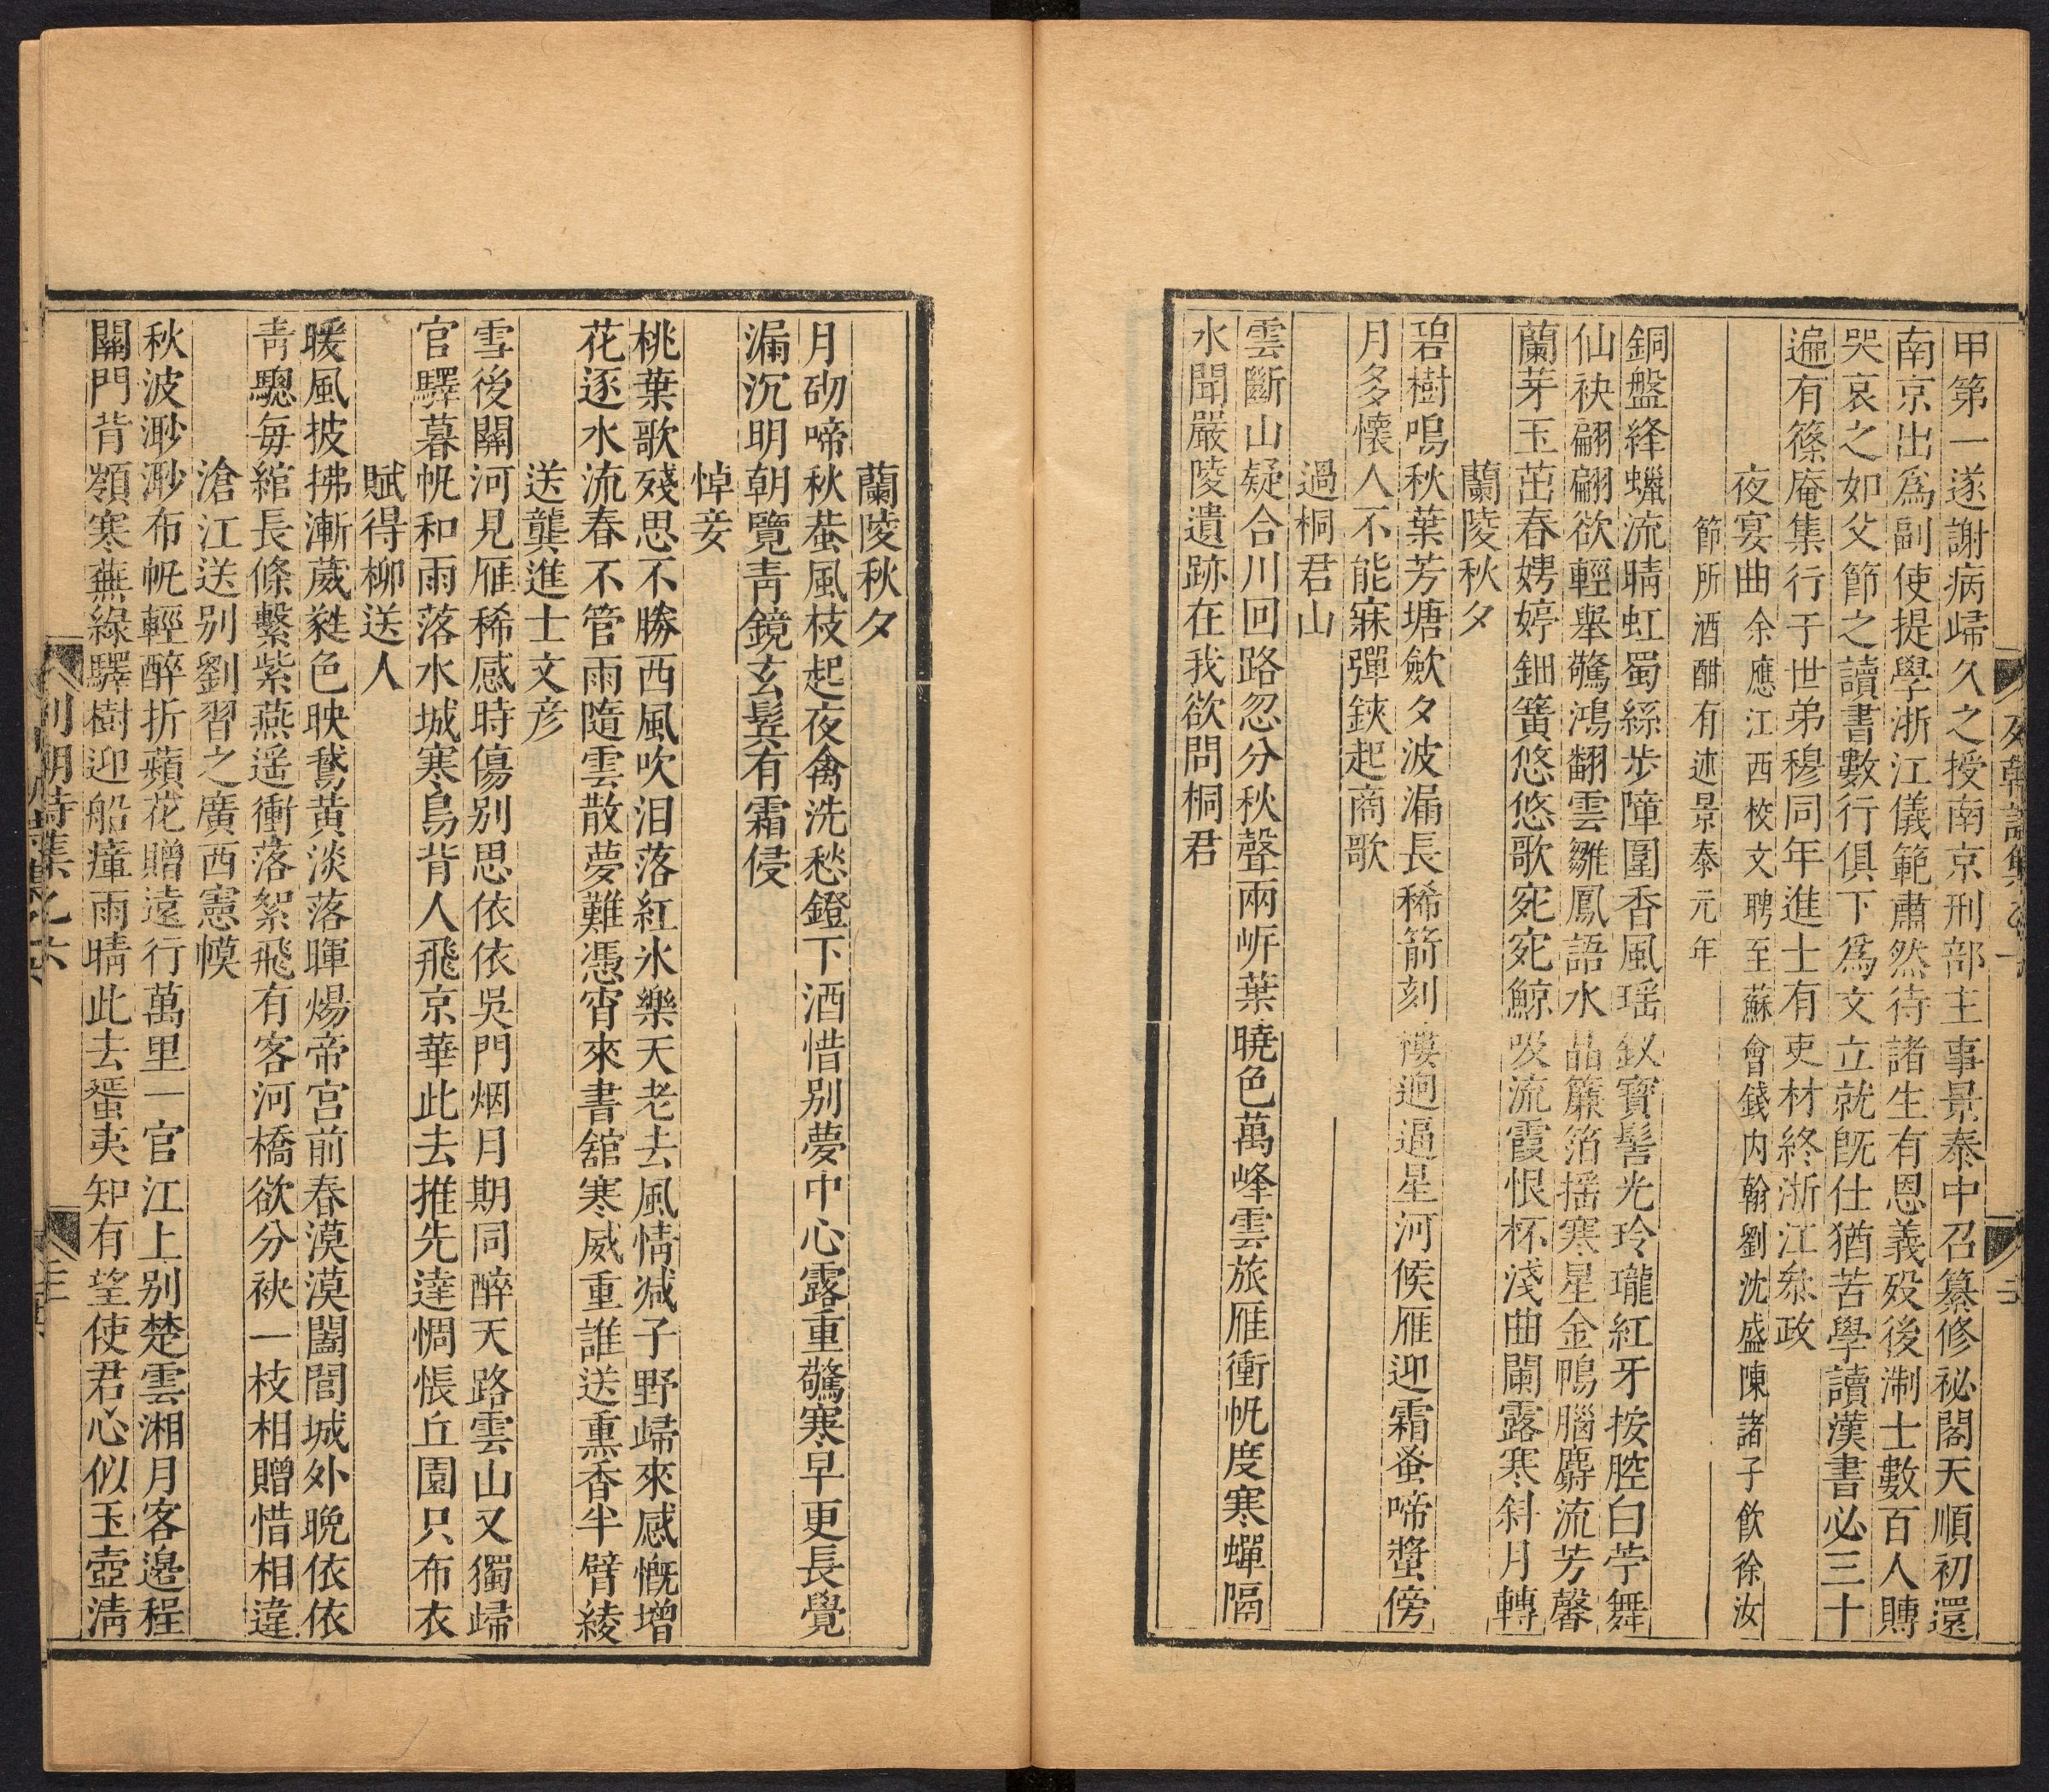 甲第一遂謝病歸久之授南京刑部主事景泰中召纂修祕閣天順初還
南京出爲副使提學浙江儀範肅然待諸生有恩義歿後淛士數百人賻
哭哀之如父節之讀書數行俱下爲文立就旣仕猶苦學讀漢書必三十
遍有篠庵集行于世弟穆同年進士有吏材終浙江叅政
夜宴曲余應江西校文聘至蘇會錢内翰劉沈盛陳諸子飲徐汝
節所酒酣有述景泰元年
銅盤絳蠟流晴虹蜀絲步障圍香風瑶釵寶髻光玲瓏紅牙按腔白苧舞
仙袂翩翩欲輕舉驚鴻翻雲雛鳳語水晶簾箔摇寒星金鴨腦麝流芳馨
蘭芽玉茁春娉婷鈿簧悠悠歌宛宛鯨吸流霞恨杯淺曲闌露寒斜月轉
蘭陵秋夕
碧樹鳴秋葉芳塘歛夕波漏長稀箭刻樓迥逼星河候雁迎霜蚤啼螿傍
月多懷人不能寐彈鋏起商歌
過桐君山
雲斷山疑合川回路忽分秋聲兩岍葉曉色萬峰雲旅雁衝帆度寒蟬隔
水聞嚴陵遺跡在我欲問桐君
蘭陵秋夕
月砌啼秋蛬風枝起夜禽洗愁鐙下酒惜别夢中心露重驚寒早更長覺
漏沉明朝覽青鏡玄鬂有霜侵
悼妾
桃葉歌殘思不勝西風吹泪落紅氷樂天老去風情减子野歸來感慨增
花逐水流春不管雨隨雲散夢難憑宵來書舘寒威重誰送熏香半臂綾
送龔進士文彦
雪後關河見雁稀感時傷别思依依吳門烟月期同醉天路雲山又獨歸
官驛暮帆和雨落水城寒鳥背人飛京華此去推先達惆悵丘園只布衣
賦得柳送人
暖風披拂漸葳蕤色映鵞黄淡落暉煬帝宫前春漠漠闔閭城外晚依依
青驄每綰長條繫紫燕遥衝落絮飛有客河橋欲分袂一枝相贈惜相違
滄江送别劉習之廣西憲幙
秋波渺渺布帆輕醉折蘋花贈遠行萬里一官江上别楚雲湘月客邊程
關門背嶺寒蕪綠驛樹迎船瘴雨晴此去蜑夷知有望使君心似玉壺清